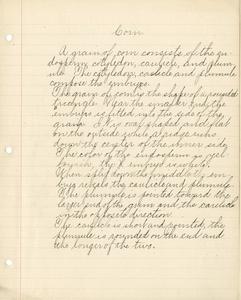 Corn
A grain of corn consists of the en-
dosperm, cotyledon, caulicle, and plum-
ule. The cotyledon, caulicle and plumule
compose the embryo.
The grain of corn is the shape of a rounded
triangle. Near the smaller end the
embryo is fitted into the side of the
grain. It is oval shaped and flat
on the outside while a ridge runs
down the center of the inner side.
The color of the endosperm is yel-
lowish, the embryo is white.
When split down the middle the em-
bryo reveals the caulicle and plumule.
The plumule is pointed toward the
larger end of the grain and the caulicle
in the opposite direction.
The caulicle is short and pointed, the
plumule is rounded on the end and
the longer of the two.